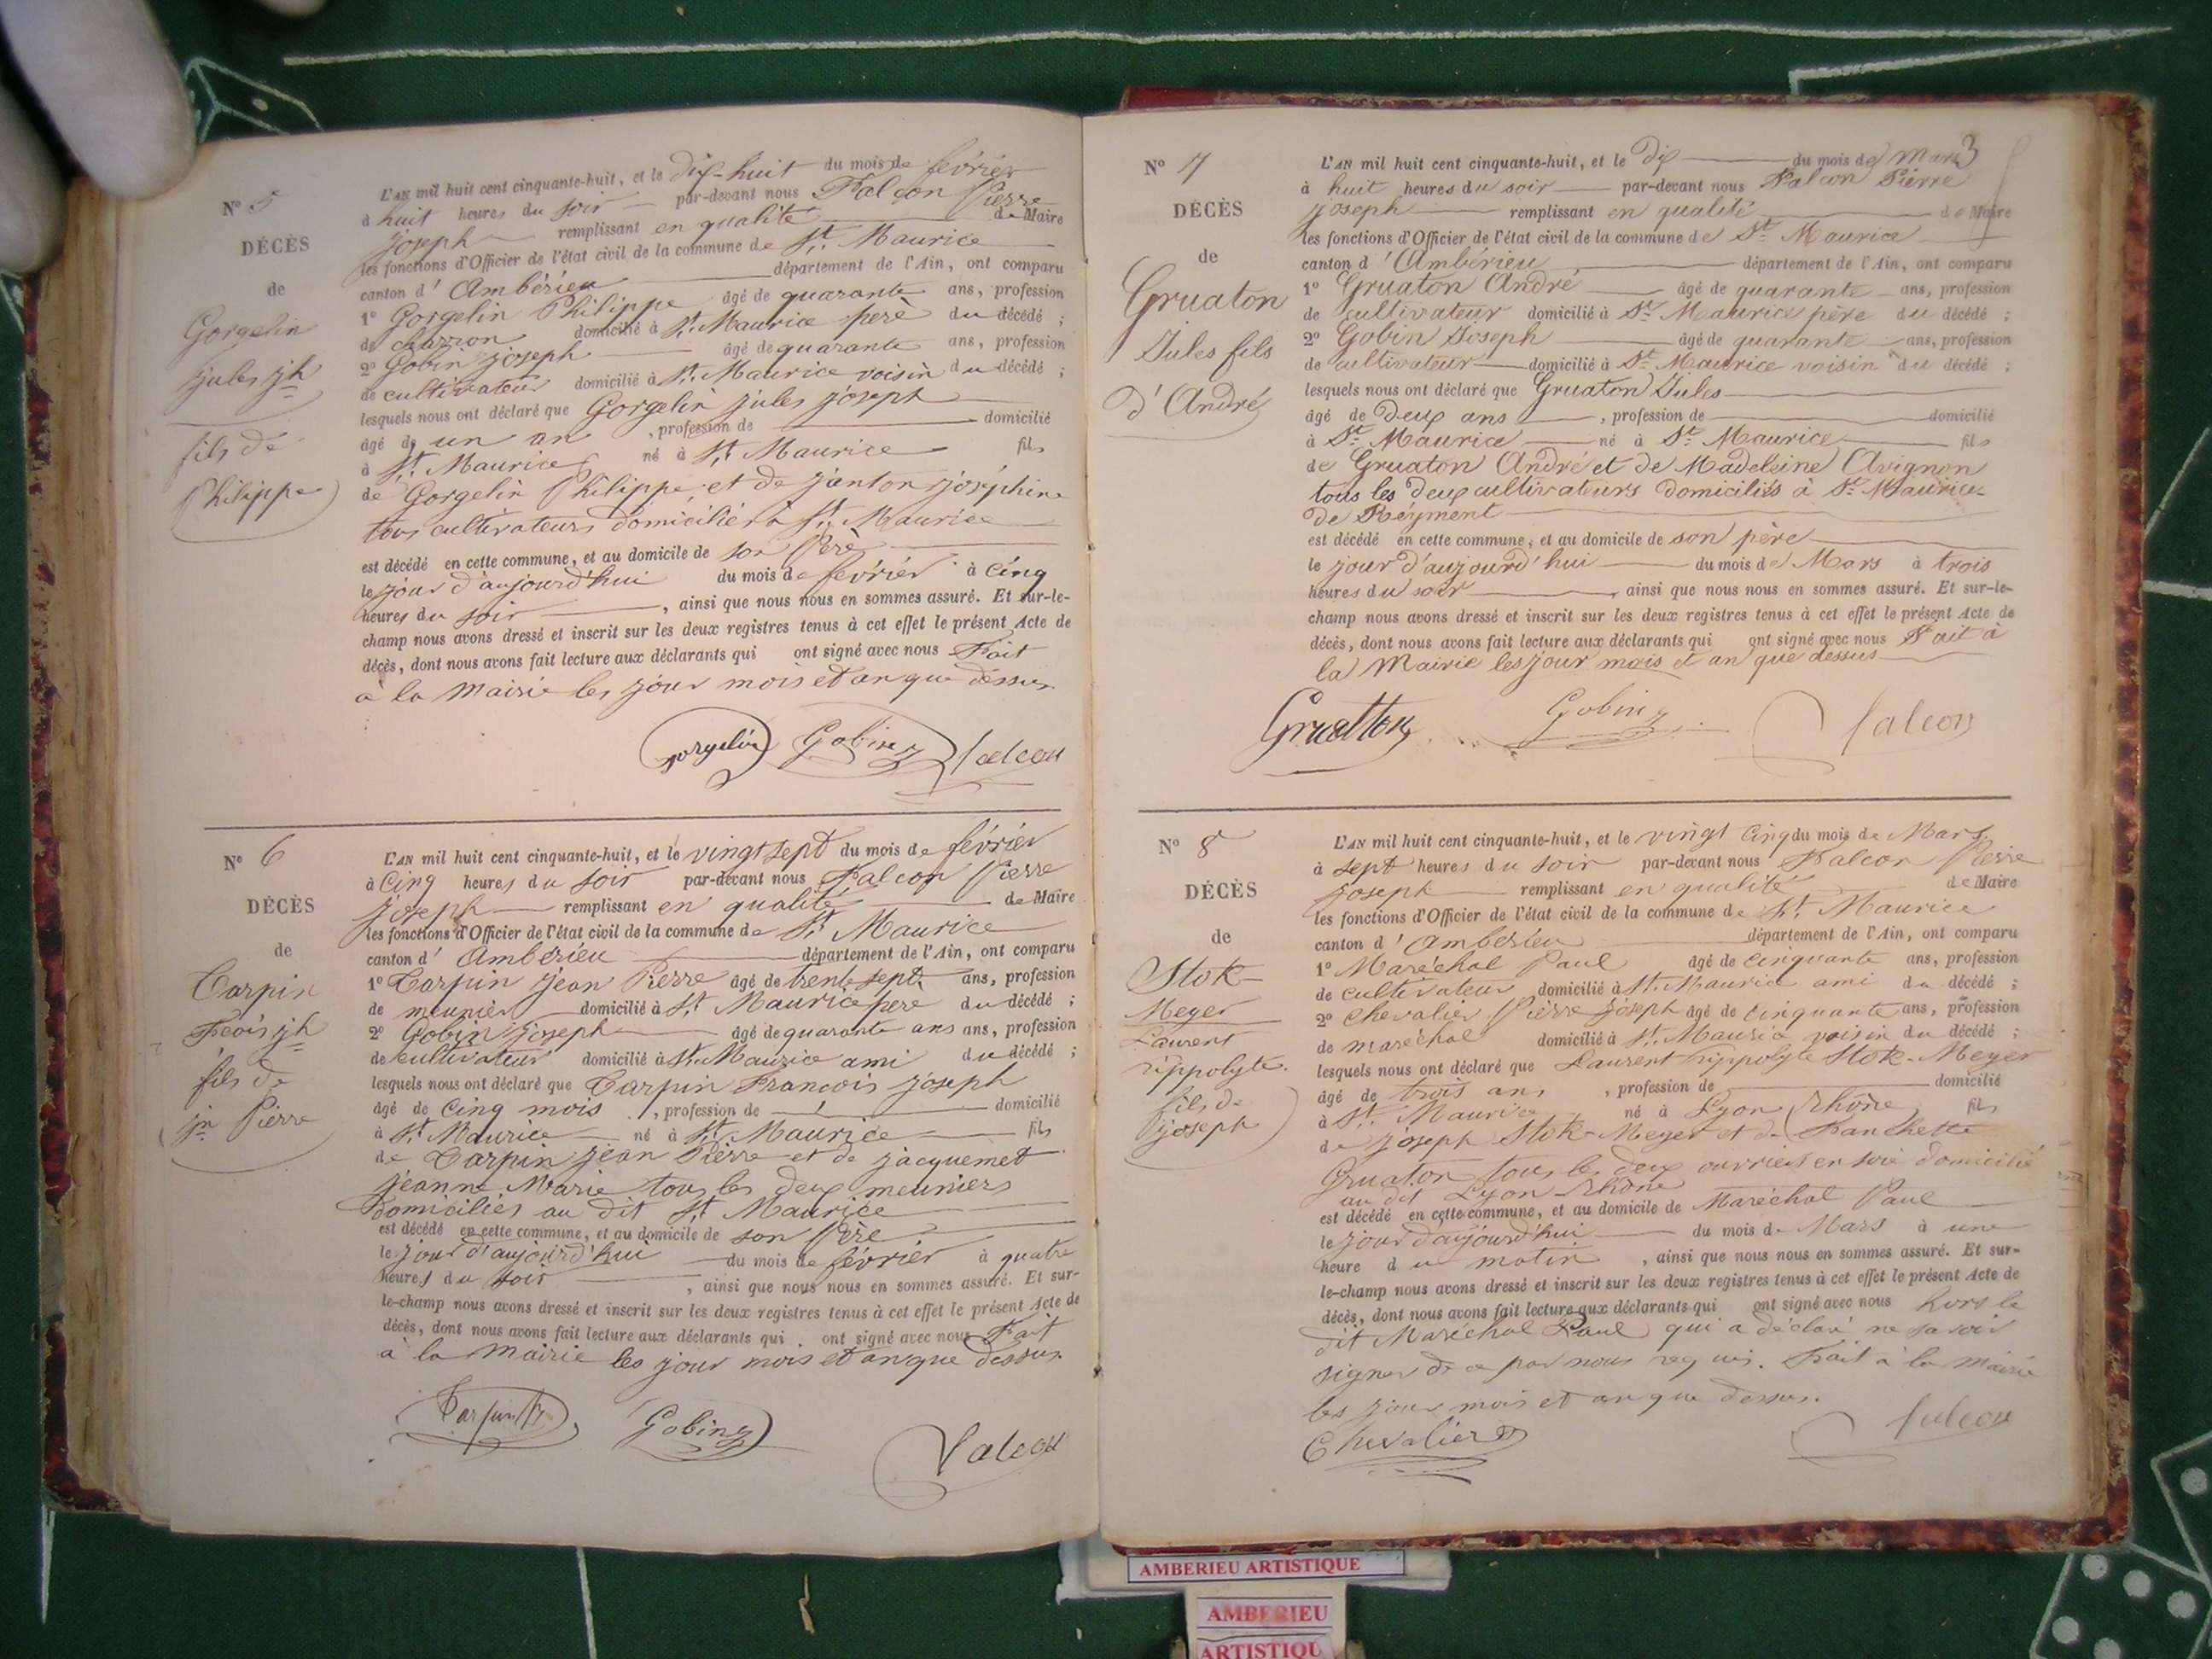 N° 5
DÉCÈS
de
Gorgelin
jules jh
fils de
Philippe
L'AN mil huit cent cinquante-huit, et le dix-huit du mois de février
à huit heures du soir par-devant nous Falcon Pierre
joseph remplissant en qualité de Maire
les fonctions d'Officier de l'état civil de la commune de St. Maurice
canton d'Ambérieu département de l'Ain, ont comparu
1° Gorgelin Philippe âgé de quarante ans, profession
de charron domicilié à St. Maurice père du décédé ;
2° Gobin joseph âgé de quarante ans, profession
de cultivateur domicilié à St. Maurice voisin du décédé ;
lesquels nous ont déclaré que Gorgelin jules joseph
âgé de un an , profession de domicilié
à St. Maurice né à St. Maurice fils
de Gorgelin Philippe et de janton joséphine
tous cultivateurs domiciliés à St. Maurice
est décédé en cette commune, et au domicile de son Père
le jour d'aujourd'hui du mois de février à cinq
heures du soir , ainsi que nous nous en sommes assuré. Et sur-le-
champ nous avons dressé et inscrit sur les deux registres tenus à cet effet le présent Acte de
décès, dont nous avons fait lecture aux déclarants qui ont signé avec nous Fait
à la Mairie les jour mois et an que dessus
Gorgelin Gobin Falcon
N° 6
DÉCÈS
de
Carpin
Fcois jh
fils de
jn Pierre
L'AN mil huit cent cinquante-huit, et le vingt sept du mois de février
à cinq heures du soir par-devant nous Falcon Pierre
joseph remplissant en qualité de Maire
les fonctions d'Officier de l'état civil de la commune de St. Maurice
canton d'Ambérieu département de l'Ain, ont comparu
1° Carpin jean Pierre âgé de trente sept ans, profession
de meunier domicilié à St. Maurice père du décédé ;
2° Gobin joseph âgé de quarante ans ans, profession
de cultivateur domicilié à St. Maurice ami du décédé ;
lesquels nous ont déclaré que Carpin Francois joseph
âgé de cinq mois , profession de domicilié
à St. Maurice né à St. Maurice fils
de Carpin jean Pierre et de jacquemet
jeanne Marie tous les deux meuniers
domiciliés au dit St. Maurice
est décédé en cette commune, et au domicile de son Père
le jour d'aujourd'hui du mois de février à quatre
heures du soir , ainsi que nous nous en sommes assuré. Et sur-
le-champ nous avons dressé et inscrit sur les deux registres tenus à cet effet le présent Acte de
décès, dont nous avons fait lecture aux déclarants qui ont signé avec nous Fait
à la Mairie les jour mois et an que dessus
Carpin Gobin Falcon
3
N° 7
DÉCÈS
de
Gruaton
Jules fils
d'André
L'AN mil huit cent cinquante-huit, et le dix du mois de Mars
à huit heures du soir par-devant nous Falcon Pierre
joseph remplissant en qualité de Maire
les fonctions d'Officier de l'état civil de la commune de St. Maurice
canton d'Ambérieu département de l'Ain, ont comparu
1° Gruaton André âgé de quarante ans, profession
de cultivateur domicilié à St. Maurice père du décédé ;
2° Gobin Joseph âgé de quarante ans, profession
de cultivateur domicilié à St. Maurice voisin du décédé ;
lesquels nous ont déclaré que Gruaton Jules
âgé de deux ans , profession de domicilié
à St. Maurice né à St. Maurice fils
de Gruaton André et de Madeleine Avignon
tous les deux cultivateurs domiciliés à St. Maurice
de Reyment
est décédé en cette commune, et au domicile de son père
le jour d'aujourd'hui du mois de Mars à trois
heures du soir , ainsi que nous nous en sommes assuré. Et sur-le-
champ nous avons dressé et inscrit sur les deux registres tenus à cet effet le présent Acte de
décès, dont nous avons fait lecture aux déclarants qui ont signé avec nous Fait à
la Mairie les jour mois et an que dessus
Gruatton Gobin Falcon
N° 8
DÉCÈS
de
Stok-
Meyer
Laurent
hippolyte
fils de
joseph
L'AN mil huit cent cinquante-huit, et le vingt cinq du mois de Mars
à sept heures du soir par-devant nous Falcon Pierre
joseph remplissant en qualité de Maire
les fonctions d'Officier de l'état civil de la commune de St. Maurice
canton d'Ambérieu département de l'Ain, ont comparu
1° Maréchal Paul âgé de cinquante ans, profession
de cultivateur domicilié à St. Maurice ami du décédé ;
2° Chevalier Pierre joseph âgé de cinquante ans, profession
de maréchal domicilié à St. Maurice voisin du décédé ;
lesquels nous ont déclaré que Laurent hippolyte Stok-Meyer
âgé de trois ans , profession de domicilié
à St. Maurice né à Lyon Rhône fils
de joseph Stok-Meyer et de Fanchette
Gruaton tous les deux ouvriers en soie domiciliés
au dit Lyon Rhône
est décédé en cette commune, et au domicile de Maréchal Paul
le jour d'aujourd'hui du mois de Mars à une
heure du matin , ainsi que nous nous en sommes assuré. Et sur-
le-champ nous avons dressé et inscrit sur les deux registres tenus à cet effet le présent Acte de
décès, dont nous avons fait lecture aux déclarants qui ont signé avec nous hors le
dit Maréchal Paul qui a déclaré ne savoir
signer de ce par nous requis. Fait à la Mairie
les jour mois et an que dessus.
Chevalier Falcon
AMBERIEU ARTISTIQUE
AMBERIEU
ARTISTIQU